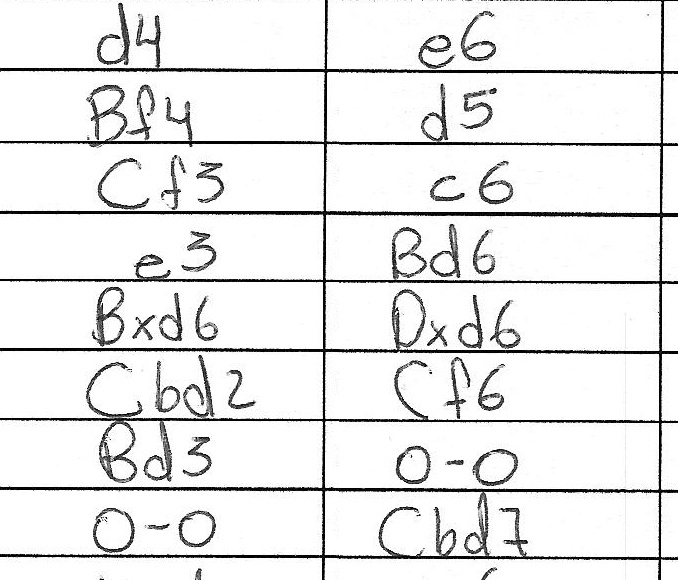 d4 e6
Bf4 d5
Cf3 c6
e3 Bd6
Bxd6 Dxd6
Cbd2 Cf6
Bd3 0-0
0-0 Cbd7